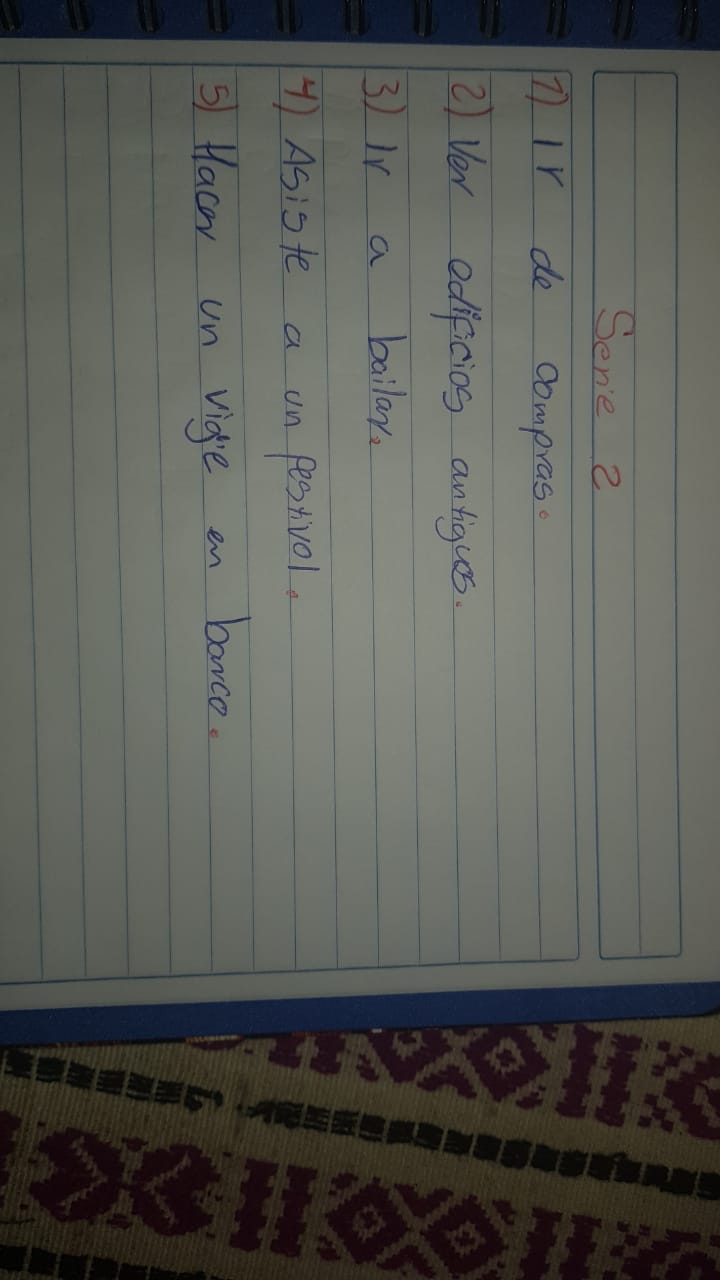 Serie 2
1) Ir de compras.
2) Ver edificios antiguos.
3) Ir a bailar.
4) Asiste a un festival.
5) Hacer un viaje en barco.